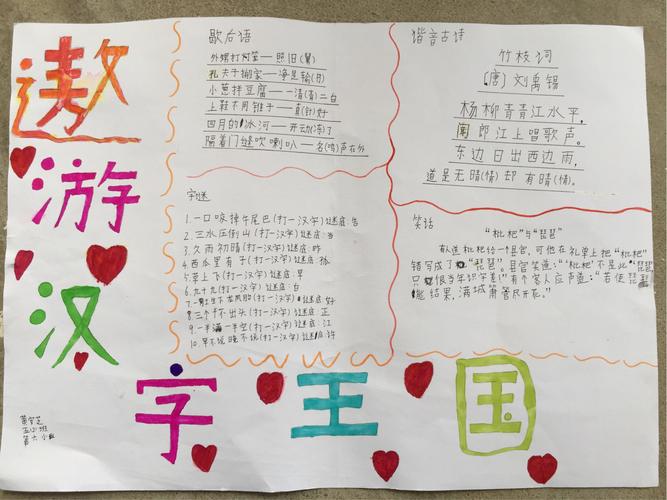 遨
游
汉
字 王 国
歇后语
外甥打灯笼——照旧(舅)
孔夫子搬家——净是输(书)
小葱拌豆腐——一清(青)二白
上鞋不用锥子——真(针)好
四月的冰河——开动(冻)了
隔着门缝吹喇叭——名(鸣)声在外
谐音古诗
竹枝词
(唐) 刘禹锡
杨柳青青江水平,
闻郎江上唱歌声。
东边日出西边雨,
道是无晴(情)却有晴(情)。
字谜
1.一口咬掉牛尾巴(打一汉字)谜底:告
2.三水压倒山(打一汉字)谜底:当
3.久雨初晴(打一汉字)谜底:昨
4.西瓜里有子(打一汉字)谜底:孤
5.草上飞(打一汉字)谜底:早
6.九十九(打一汉字)谜底:白
(打一汉字)谜底:好
8.三个不出头(打一汉字)谜底:正
9.一半满一半空(打一汉字)谜底:江
10.早不说晚不说(打一汉字)谜底:许
笑话
“枇杷”与“琵琶”
有人送枇杷给一个县官,可他在礼单上把“枇杷”
错写成了“琵琶”。县官笑道:“‘枇杷’不是此‘琵琶’
只恨当年识字差!”有个客人应声道:“若使琵琶
能结果,满城箫管尽开花。”
五(2)班
第六小组